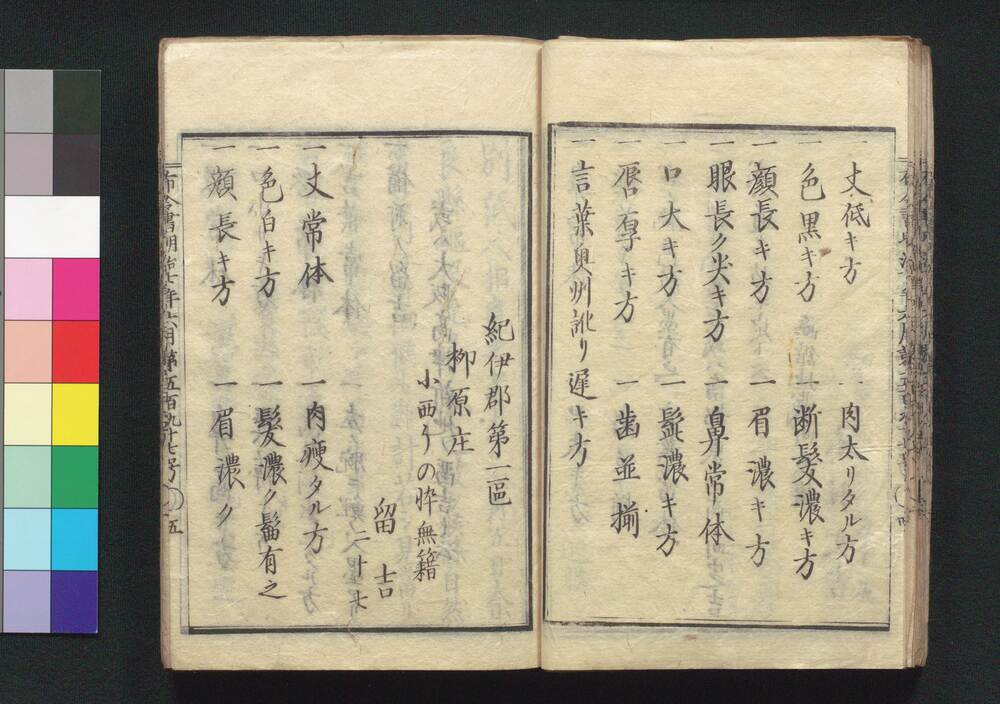 一丈低キ方 一肉太リタル方
一色黒キ方 一断髪濃キ方
一顔長キ方 一眉濃キ方
一眼長ク尖キ方 一鼻常体
一口大キ方 一髭濃キ方
一唇厚キ方 一歯並揃
一言葉奥州訛リ遅キ方
紀伊郡第一區
柳原庄
小西りうの忰無籍
留吉
二十四才
一丈常体 一肉痩タル方
一色白キ方 一髪濃ク髷有之
一顔長キ方 一眉濃ク
布令書明治七年六月第五百九十七号 五